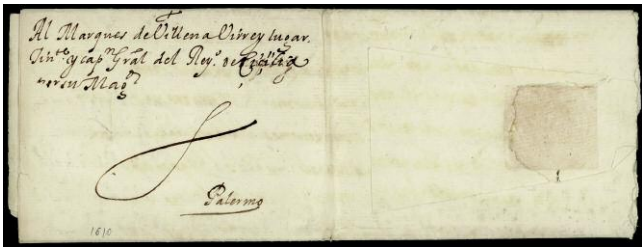 Al Marques de Villena Virrey lugar.
Tin.te y cap.n Gral del Rey.o de Sicilia
por su Mag.d
Palermo
1610